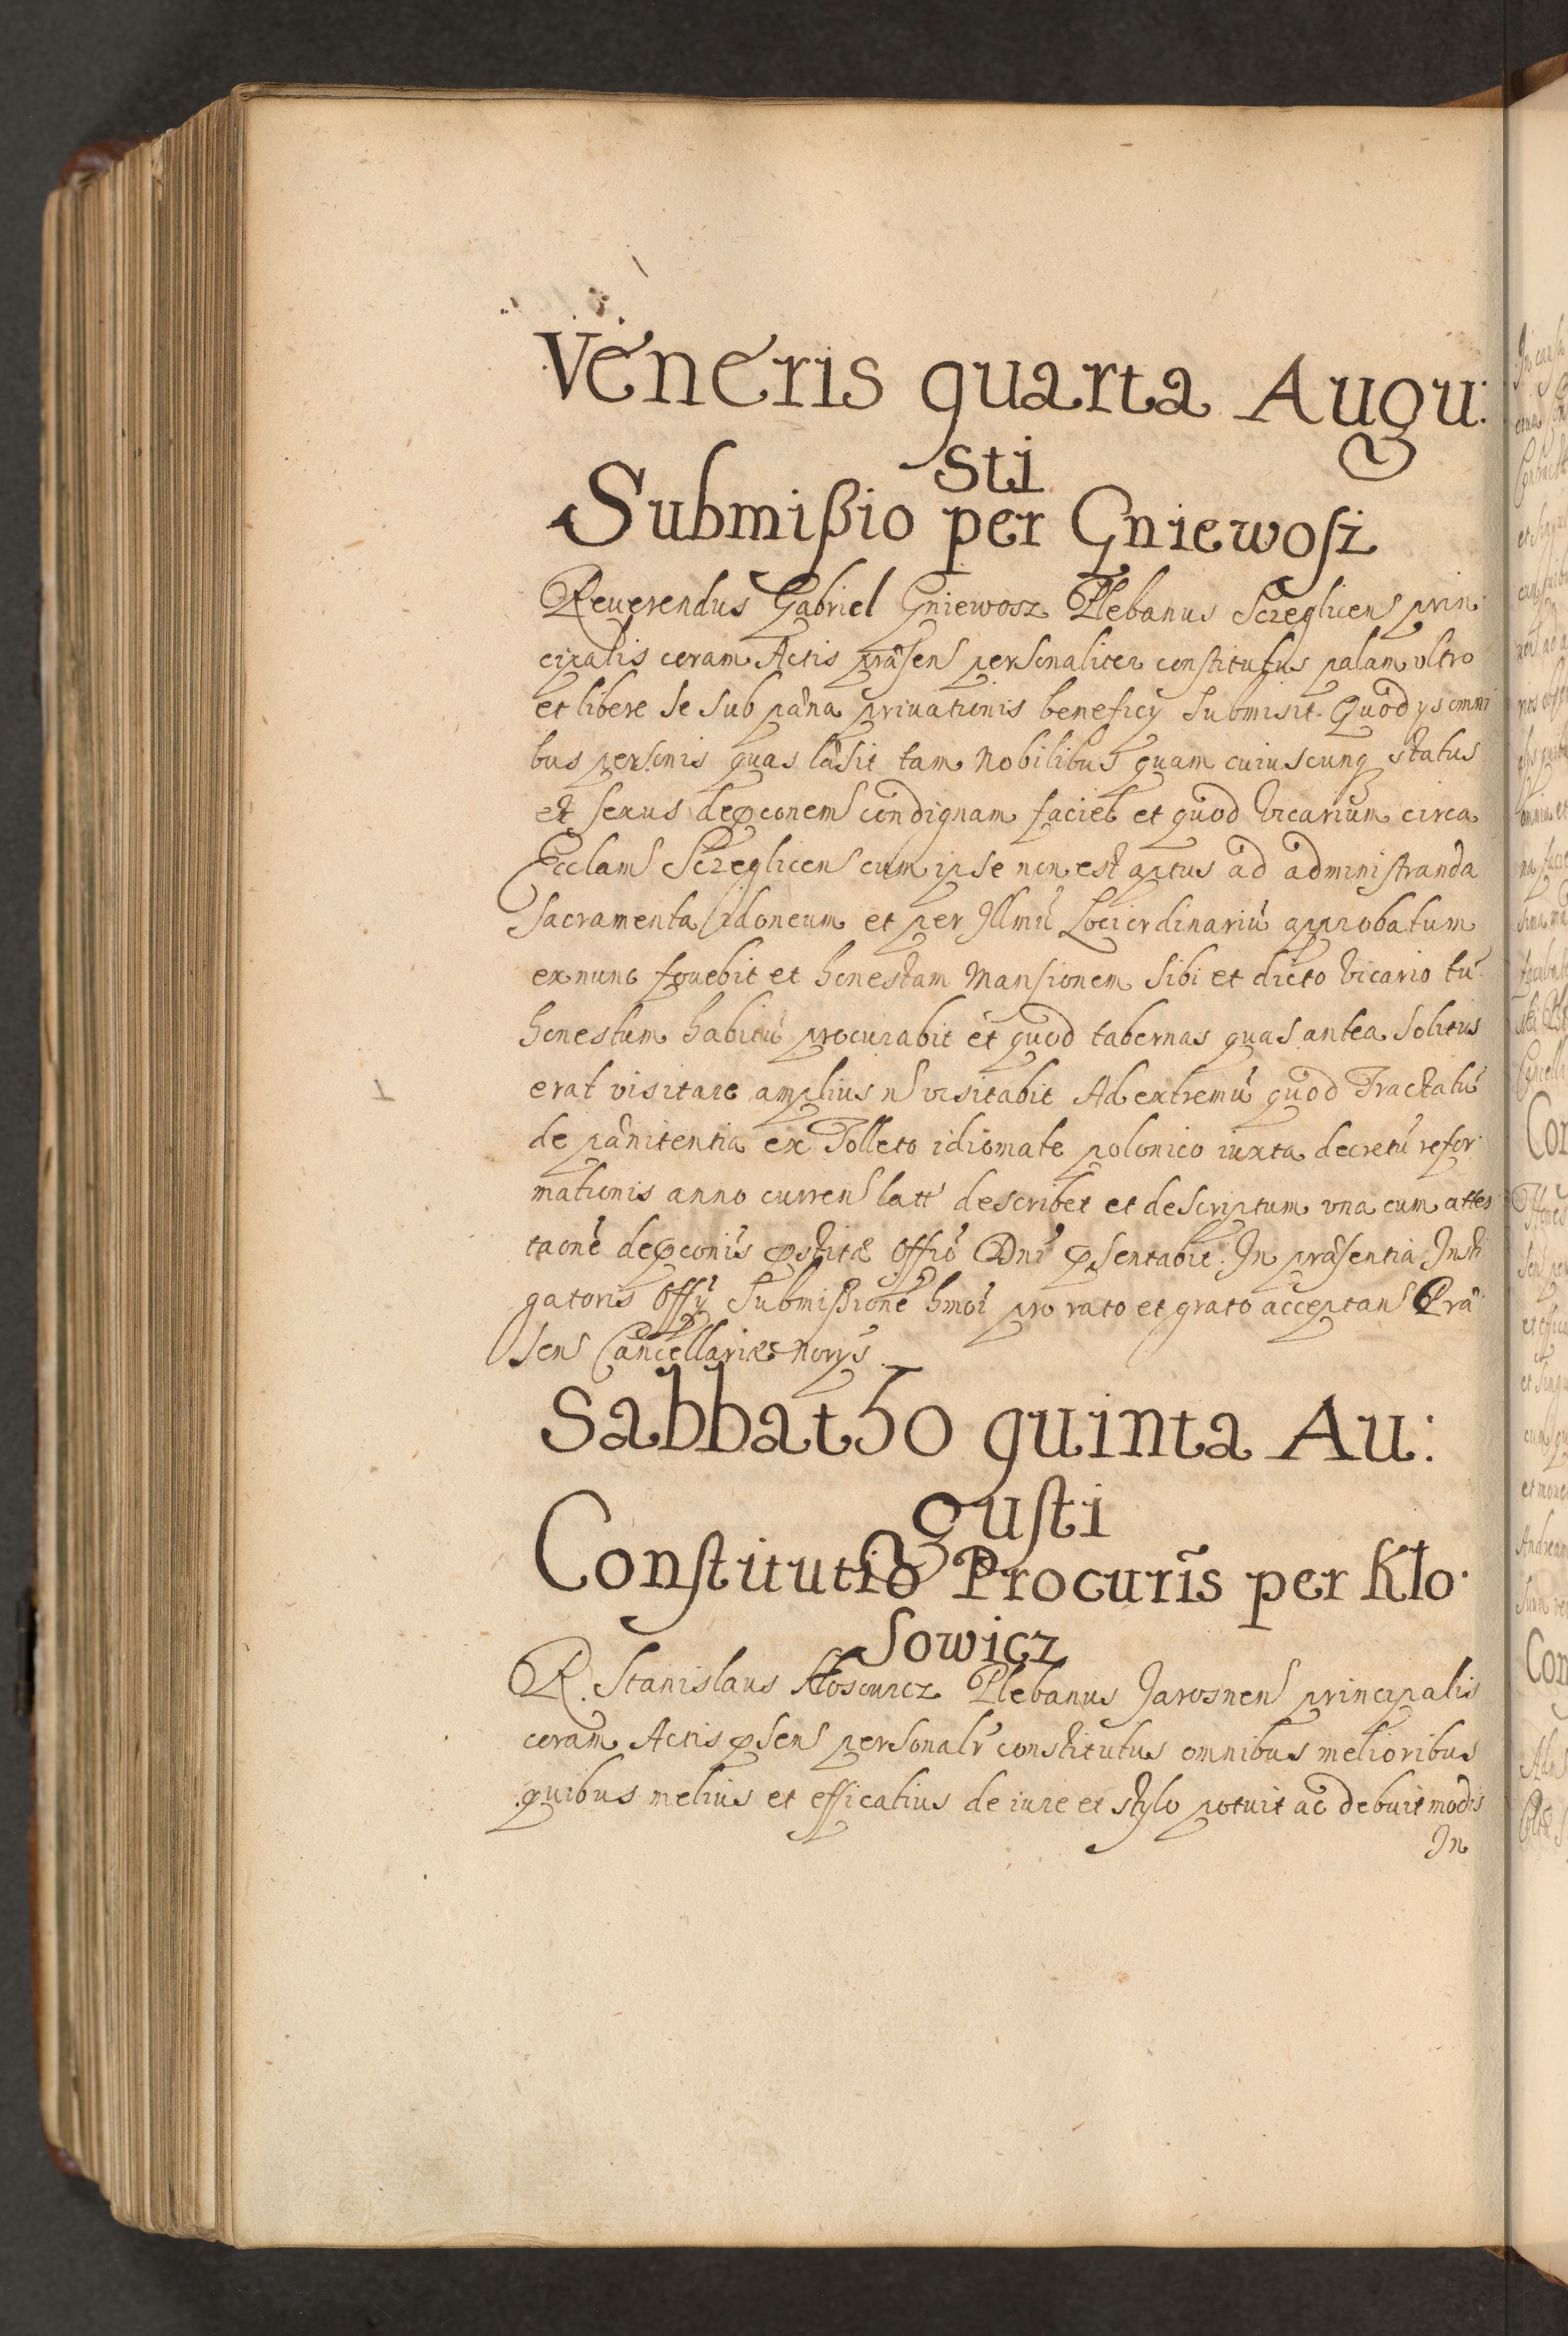 Veneris quarta Augu:
sti
Submißio per Gniewosz
Reuerendus Gabriel Gniewosz Plebanus Sczeglicens prin
cipalis coram Actis præsens personaliter constitutus palam vltro
et libere se sub pæna priuationis beneficy submisit. Quod ys omni
bus personis quas læsit tam nobilibus quam cuiuscunq status
et sexus depconem condignam faciet et quod vicarium circa
Ecclam Sczeglicens cum ipse non est aptus ad administranda
sacramenta idoneum et per Illmū Loci ordinariū approbatum
ex nunc fouebit et honestam mansionem sibi et dicto vicario tū
honestum habitū procurabit et quod tabernas quas antea solitus
erat visitare amplius n visitabit Ad extremū quod Tractatū
de pænitentia ex Tolleto idiomate polonico iuxta decretū refor
mationis anno currens latt describet et descriptum vna cum attes
taone depconis pstitæ Offio Dni psentabit. In præsentia Insti
gatoris Offy submißione hmoi pro rato et grato acceptans Præ
sens Cancellariæ Norys
Sabbatho quinta Au:
gusti
Constitutio Procuris per Kło
sowicz
R. Stanislaus Kłosowicz Plebanus Jarosnens principalis
coram Actis psens personalr constitutus omnibus melioribus
quibus melius et efficatius de iure et stylo potuit ac debuit modis
In